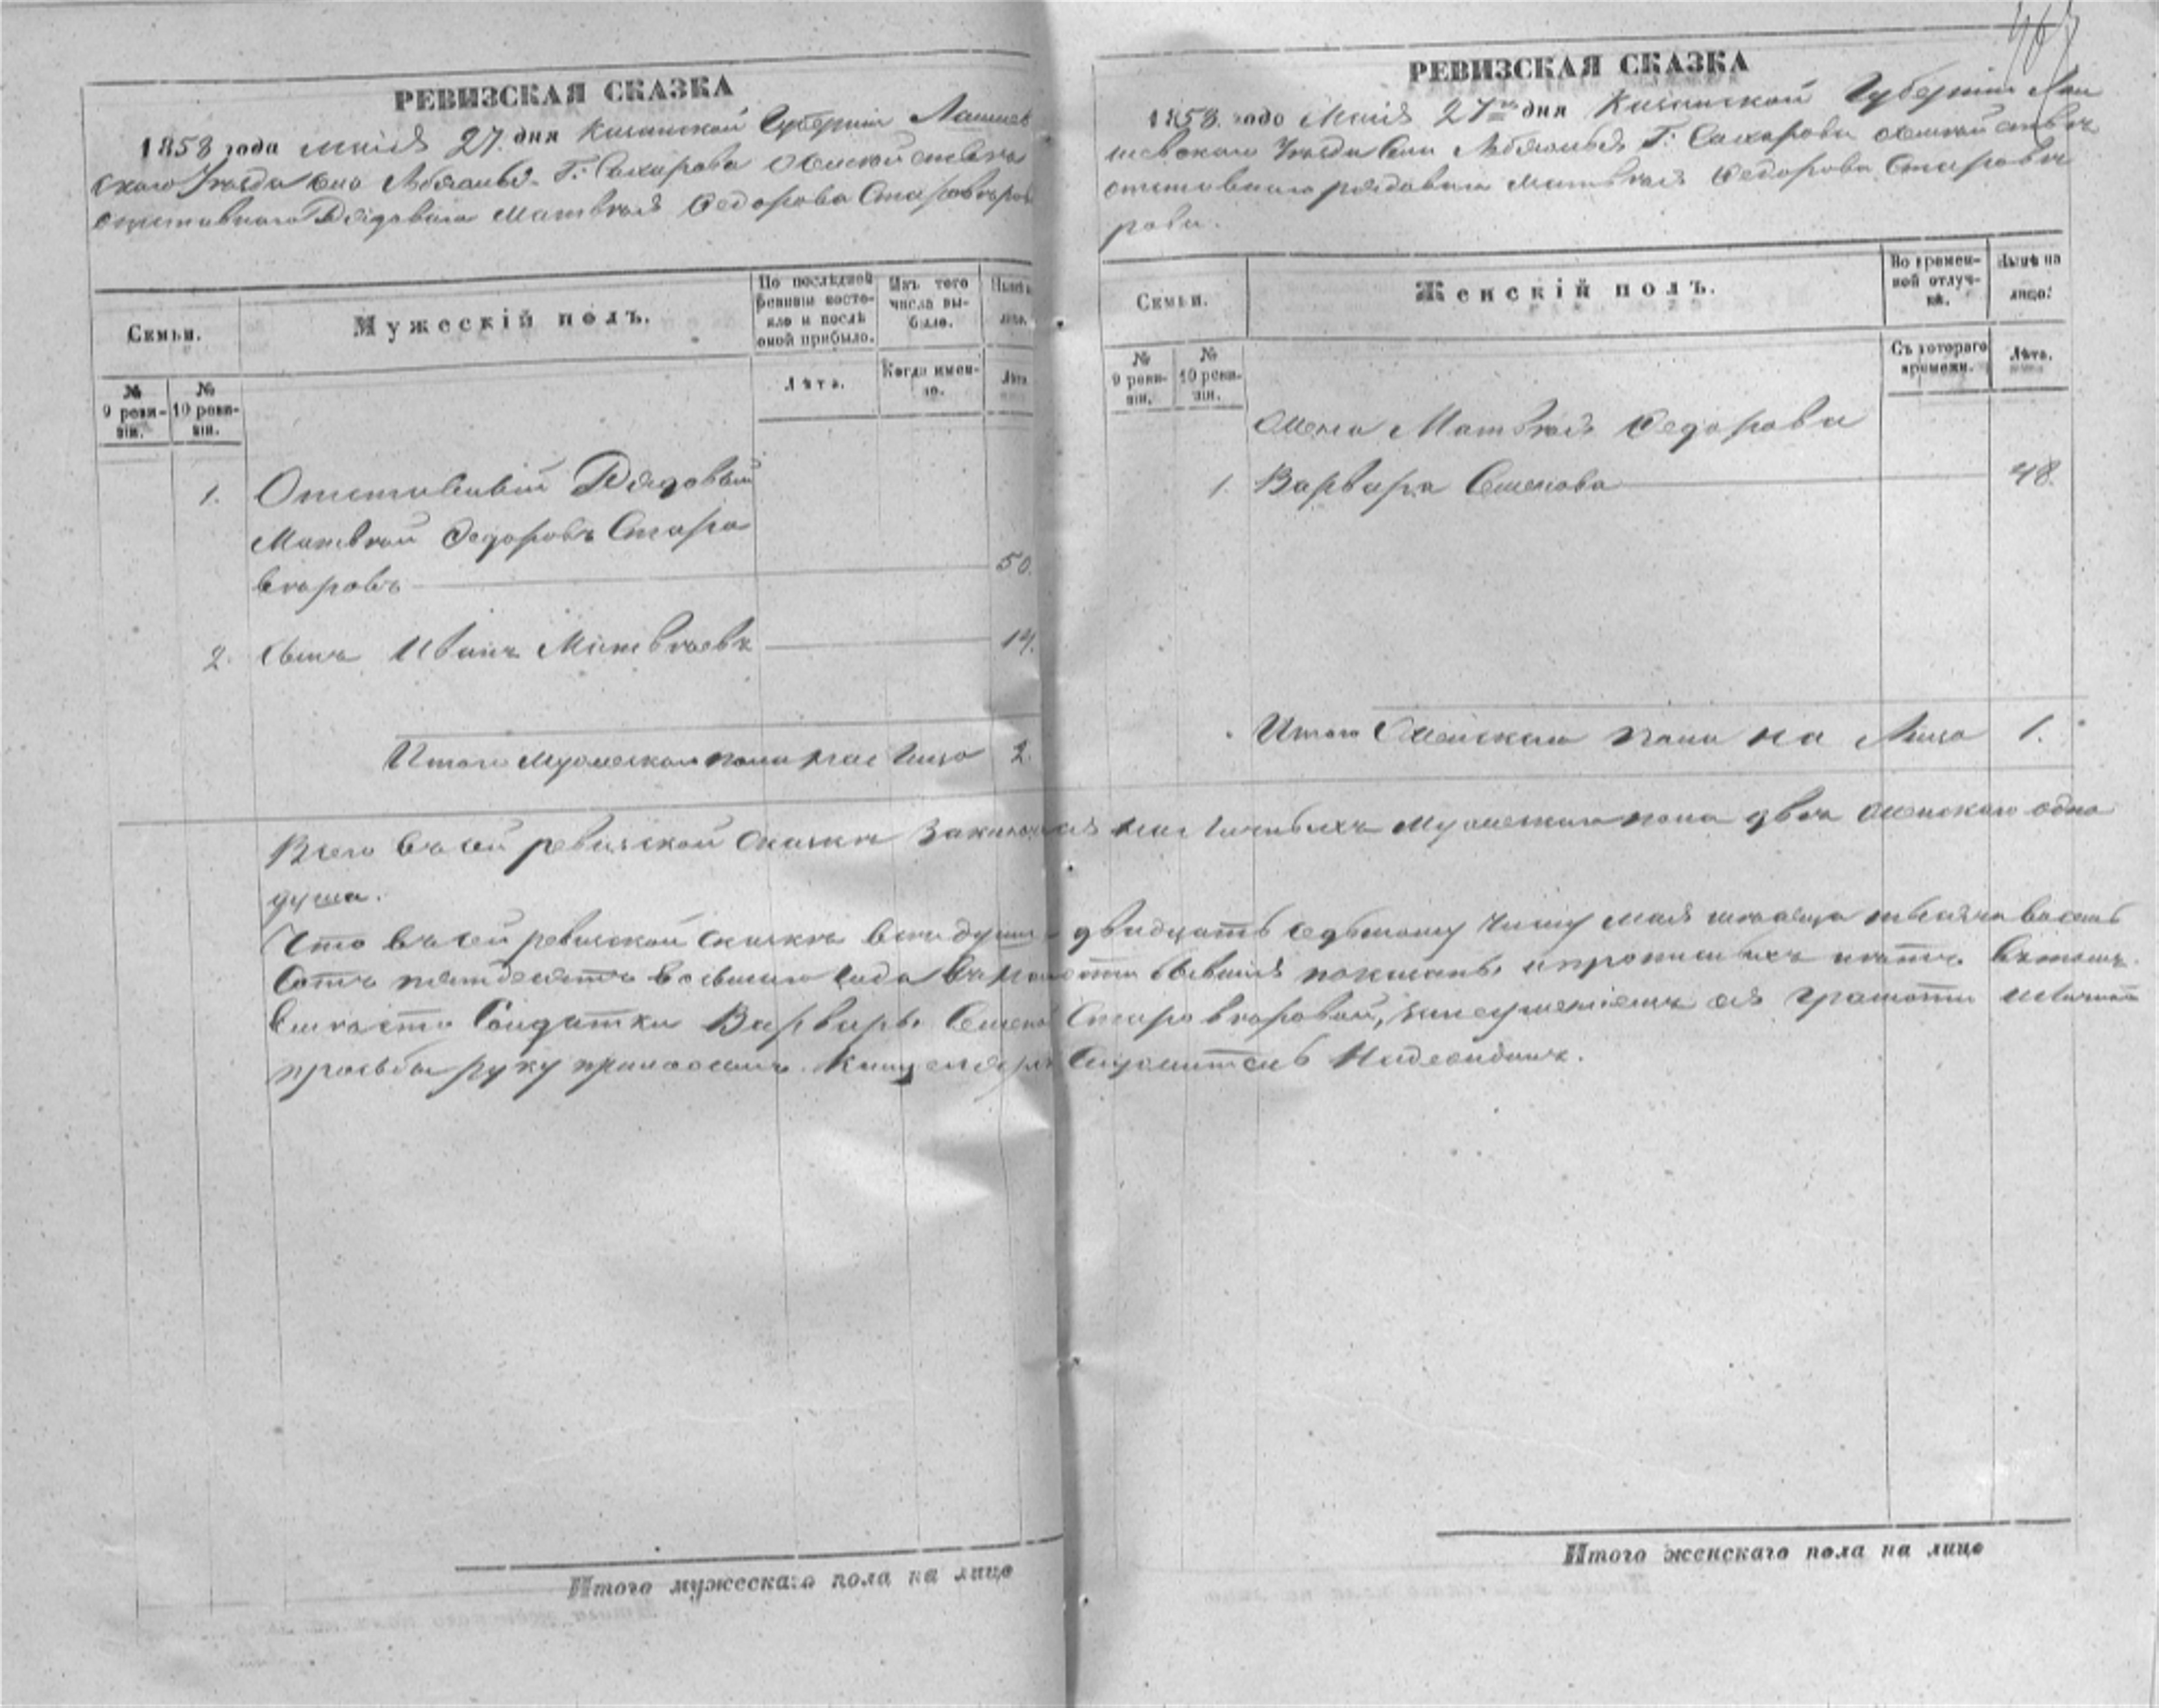 РЕВИЗСКАЯ СКАЗКА
1858 года маія 27. дня Казанской Губерніи Лаишев
скаго Уѣзда села Г: Сахарова
отставнаго Рядоваго Матвѣя Федорова Старовѣрова
Семьи.
Мужескій полъ.
По послѣдней ревизіи состо-
яло и послѣ оной прибыло.
Изъ того числа вы-
было.
Нынѣ на лицо.
№ 9 реви-
зіи.
№ 10 реви-
зіи.
Лѣта.
Когда имен-
но.
Лѣта
1. Отставный Рядовый
Матвѣй Федоровъ Старо
вѣровъ 50.
2. Сынъ Иванъ Матвѣевъ 14.
Итого Мужескаго пола на лицо 2
Итого мужескаго пола на лицо
РЕВИЗСКАЯ СКАЗКА
1858. года Маія 27го дня Казанской Губерніи Лаи
шевскаго Уѣзда Села Г: Сахарова
отставнаго рядоваго Матвѣя Федорова Старовѣ
рова.
Семьи.
Женскій полъ.
Во времен-
ной отлуч-
кѣ.
Нынѣ на лицо.
№ 9 реви-
зіи.
№ 10 реви-
зіи.
Съ котораго
времени.
Лѣта.
Жена Матвѣя Федорова
1. Варвара Семенова 48.
Итого Женскаго пола на Лицо 1.
Итого женскаго пола на лице
Всего въ сей ревизской сказкѣ заключается наличныхъ Мужескаго пола двѣ женскаго одна
душа.
Что въ сей ревизской сказкѣ всѣ души двадцать седьмому числу маія мѣсяца тысяча восемь
сотъ пятдесятъ восьмаго года показаны и прописныхъ нѣтъ въ томъ
вмѣсто Солдатки Варвары Семеновой Старовѣровой, за неумѣніемъ ея грамоти и личной
просьбы руку приложилъ Канцелярскій Служитель